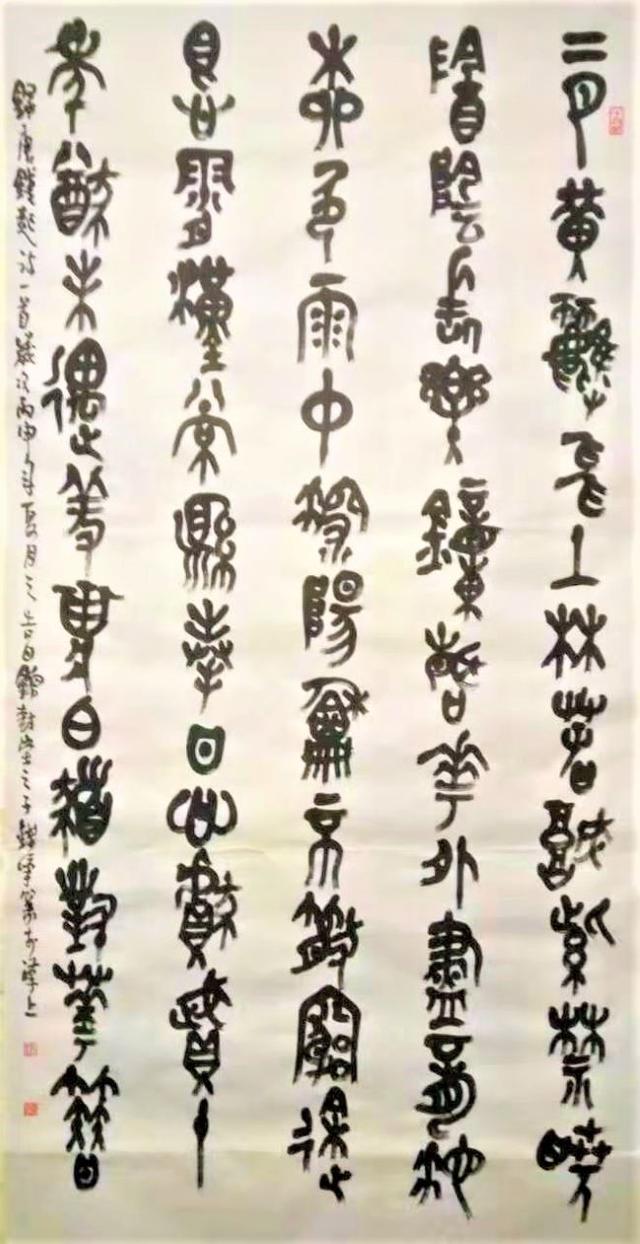 二月黃鸝飛上林春城紫禁曉
陰陰長樂鐘聲花外盡龍池
柳色雨中深陽和不散窮途
恨霄漢長懷捧日心獻賦十
年猶未遇羞將白髮對華簪
錄唐錢起詩一首歲次丙申年夏月之吉